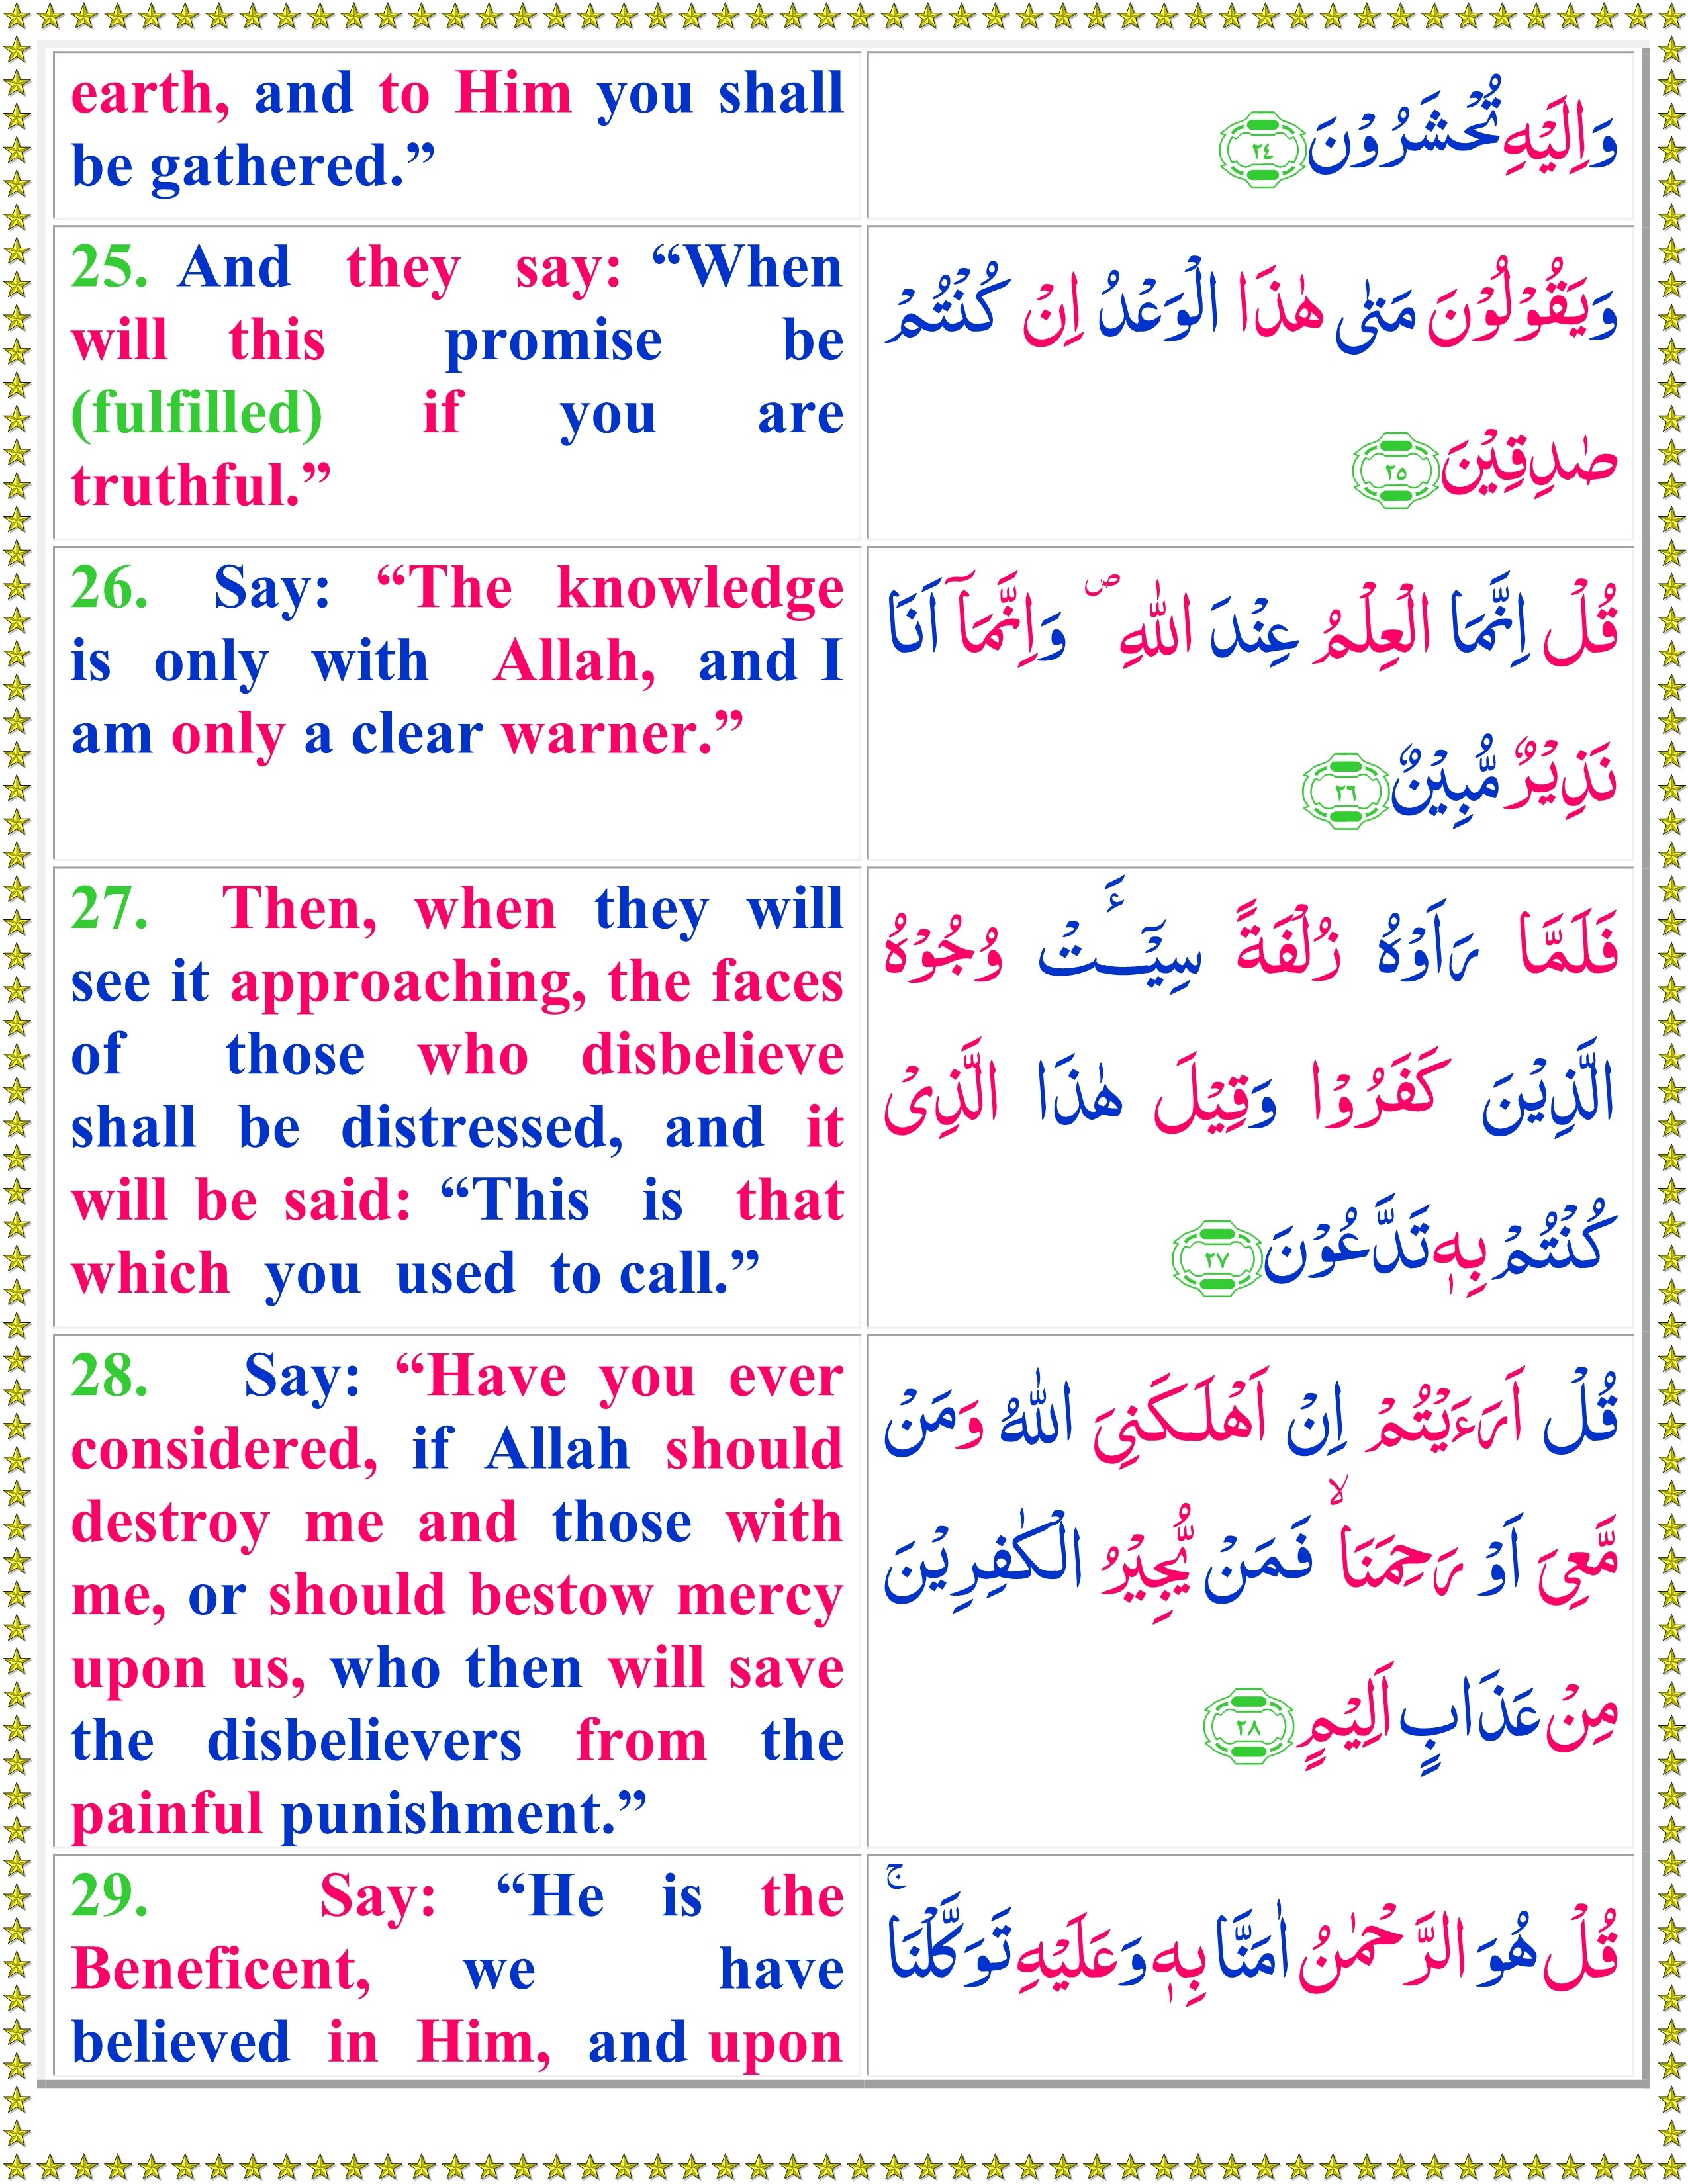 earth, and to Him you shall
be gathered.”
وَاِلَيْهِ تُحْشَرُوْنَ ٢٤
25. And they say: “When
will this promise be
(fulfilled) if you are
truthful.”
وَيَقُوْلُوْنَ مَتٰى هٰذَا الْوَعْدُ اِنْ كُنْتُمْ
صٰدِقِيْنَ ٢٥
26. Say: “The knowledge
is only with Allah, and I
am only a clear warner.”
قُلْ اِنَّمَا الْعِلْمُ عِنْدَ اللّٰهِ ۖ وَاِنَّمَاۤ اَنَا
نَذِيْرٌ مُّبِيْنٌ ٢٦
27. Then, when they will
see it approaching, the faces
of those who disbelieve
shall be distressed, and it
will be said: “This is that
which you used to call.”
فَلَمَّا رَاَوْهُ زُلْفَةً سِيْٓــَٔتْ وُجُوْهُ
الَّذِيْنَ كَفَرُوْا وَقِيْلَ هٰذَا الَّذِىْ
كُنْتُمْ بِهٖ تَدَّعُوْنَ ٢٧
28. Say: “Have you ever
considered, if Allah should
destroy me and those with
me, or should bestow mercy
upon us, who then will save
the disbelievers from the
painful punishment.”
قُلْ اَرَءَيْتُمْ اِنْ اَهْلَـكَنِىَ اللّٰهُ وَمَنْ
مَّعِىَ اَوْ رَحِمَنَا ۙ فَمَنْ يُّجِيْرُ الْكٰفِرِيْنَ
مِنْ عَذَابٍ اَلِيْمٍ ٢٨
29. Say: “He is the
Beneficent, we have
believed in Him, and upon
قُلْ هُوَ الرَّحْمٰنُ اٰمَنَّا بِهٖ وَعَلَيْهِ تَوَكَّلْنَا ۚ